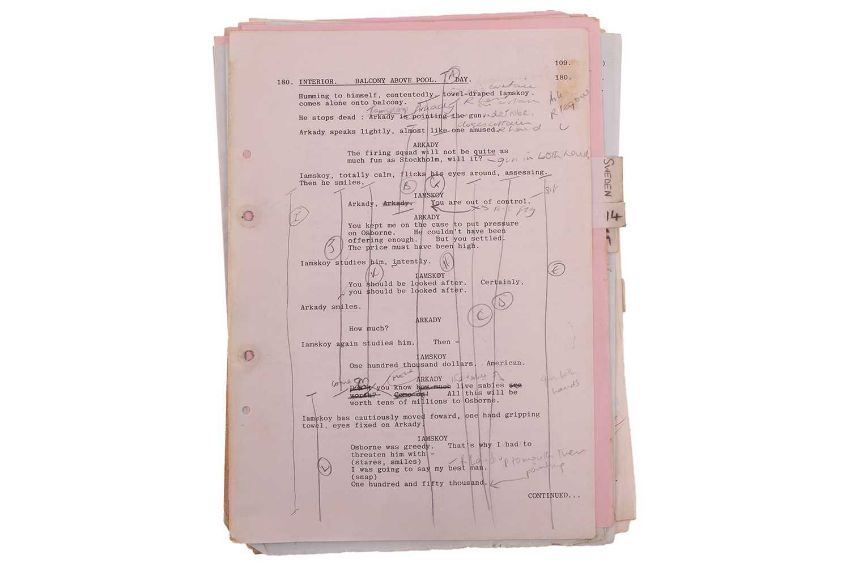 109.
180. INTERIOR. BALCONY ABOVE POOL. DAY. 180.
Humming to himself, contentedly, towel-draped Iamskoy.
comes alone onto balcony.
He stops dead : Arkady is pointing the gun.
Arkady speaks lightly, almost like one amused.
ARKADY
The firing squad will not be quite as
much fun as Stockholm, will it? - gun in both hand
Iamskoy, totally calm, flicks his eyes around, assessing.
Then he smiles.
IAMSKOY
Arkady, Arkady. You are out of control.
ARKADY
You kept me on the case to put pressure
on Osborne. He couldn't have been
offering enough. But you settled.
The price must have been high.
Iamskoy studies him, intently.
IAMSKOY
You should be looked after. Certainly,
you should be looked after.
Arkady smiles.
ARKADY
How much?
Iamskoy again studies him. Then -
IAMSKOY
One hundred thousand dollars. American.
ARKADY
you know how much live sables are
worth? All this will be
worth tens of millions to Osborne.
Iamskoy has cautiously moved foward, one hand gripping
towel, eyes fixed on Arkady.
IAMSKOY
Osborne was greedy. That's why I had to
threaten him with -
(stares, smiles)
I was going to say my best man.
(snap)
One hundred and fifty thousand.
CONTINUED...
SWEDEN
14